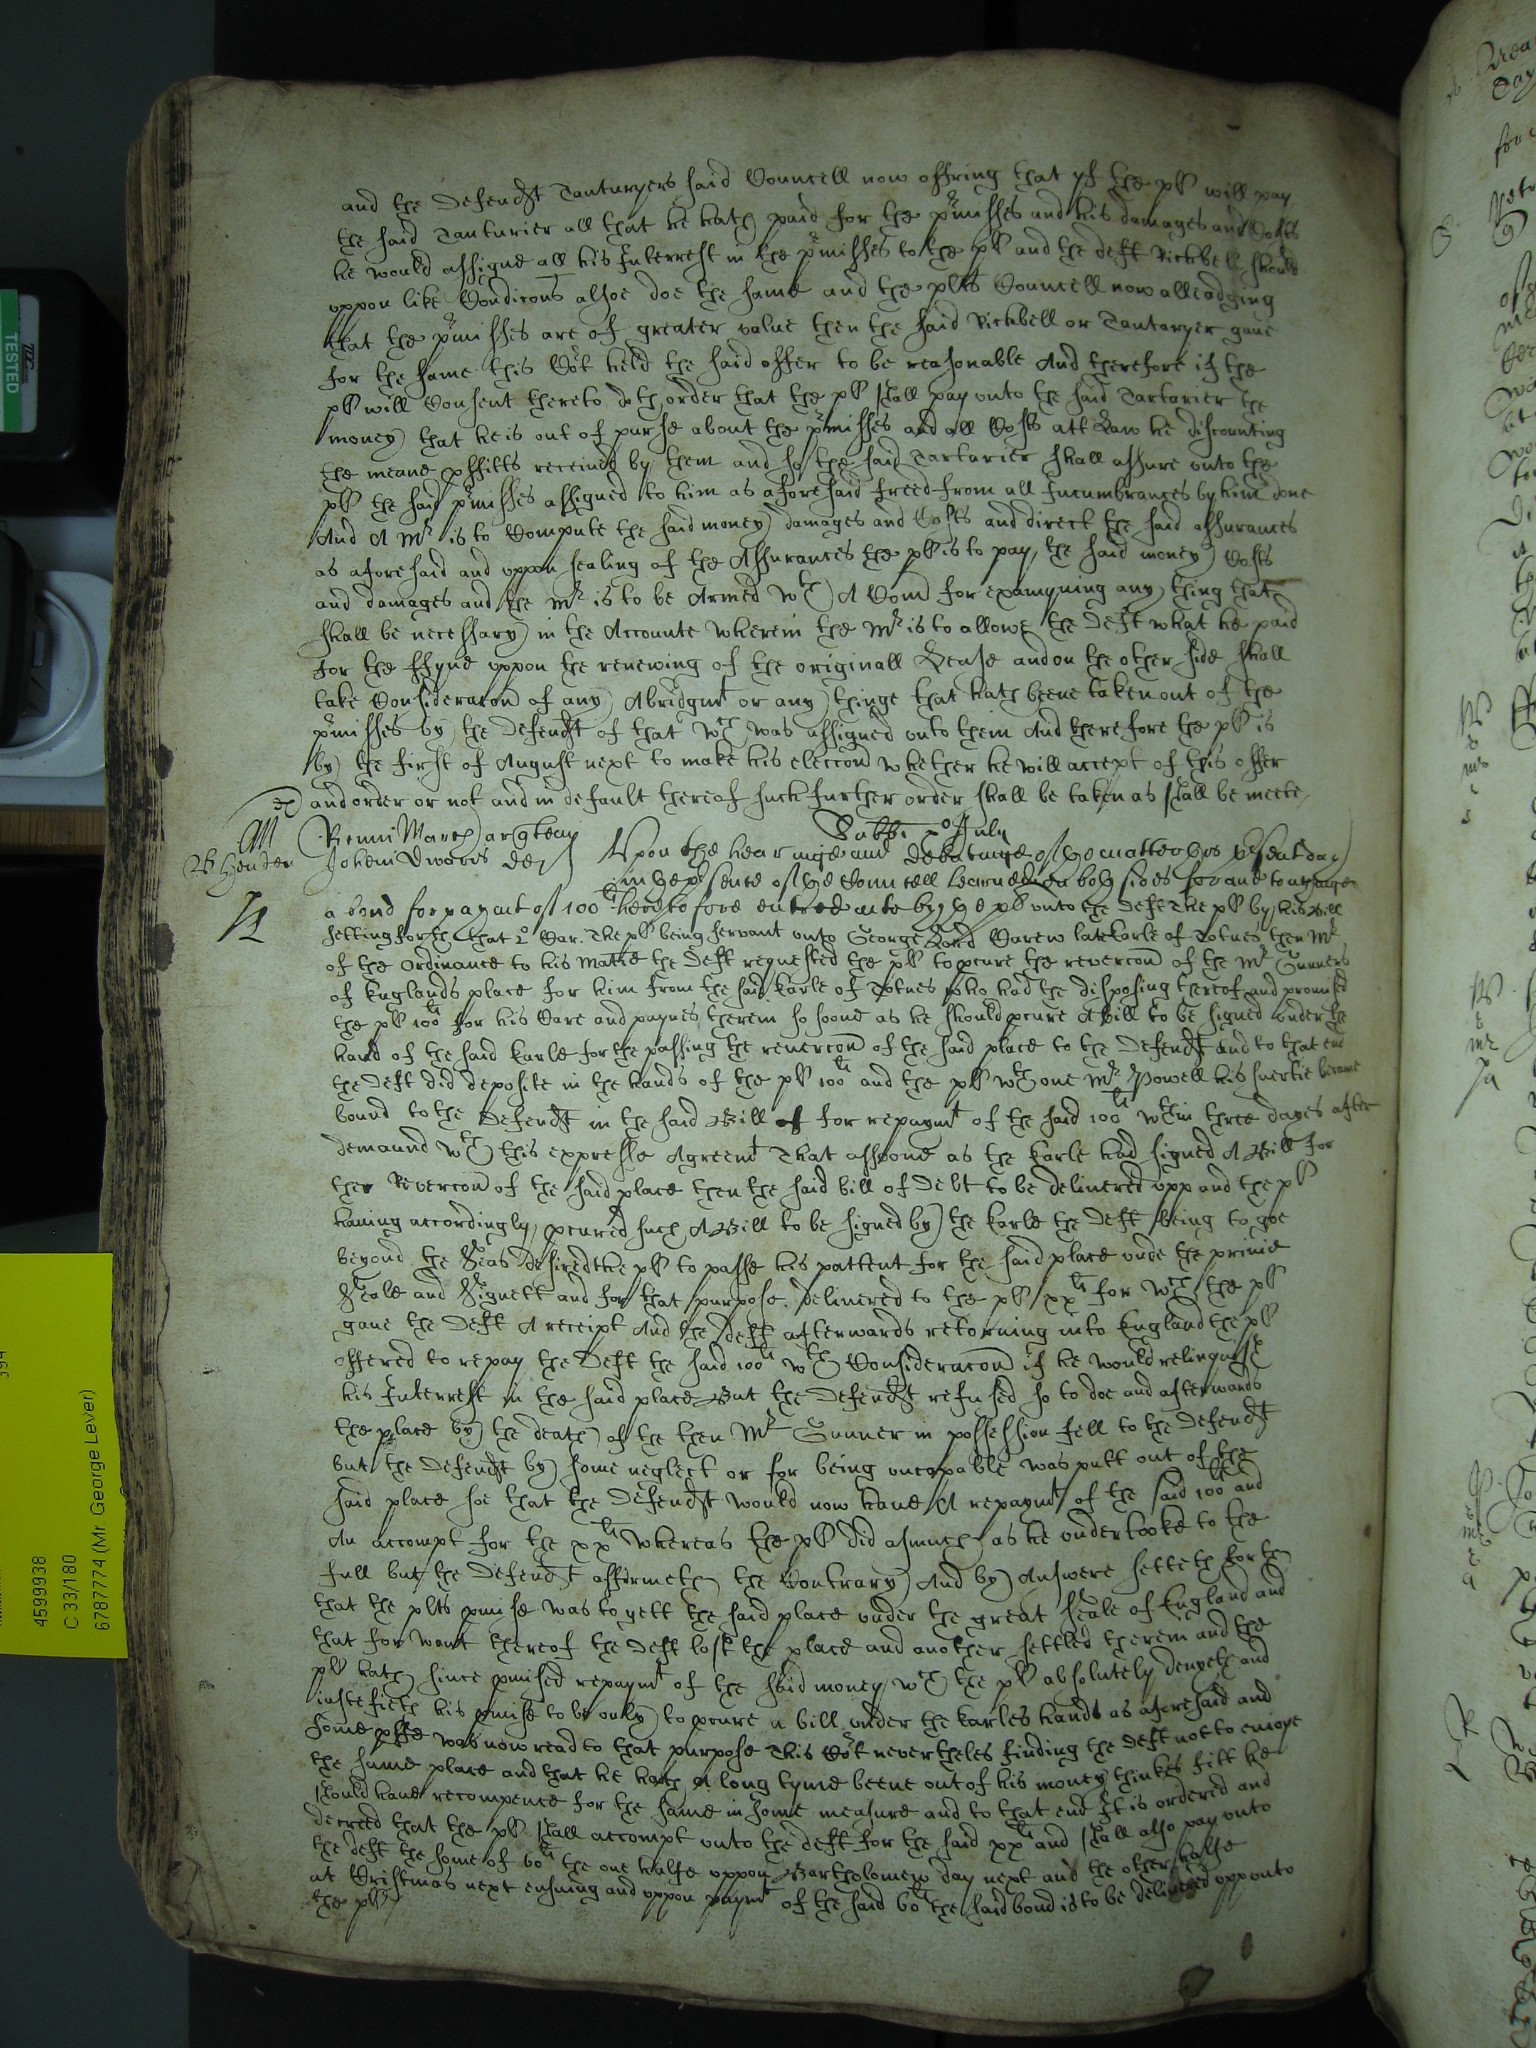 and the Defend{t} Tanturyers said Councell now offring that yf the pl{t} will pay
the said Tanturier all that he hath paid for the p{r}misses and his damages and Costs
he would assigne all his Interrest in the p{r}misses to the pl{t} and the deft Rickbell should
uppon like Condicons alsoe doe the same and the plts Councell now alleadging
that the p{r}misses are of greater value then the said Rickbell or Tantaryer gaue
for the same this Co{r}t held the said offer to be reasonable And therefore if the
pl{t} will Consent thereto doth order that the pl{t} shall pay unto the said Tartarier the
money that he is out of purse about the p{r}misses and all Costs att Law he discounting
the meane pffitts receiued by them and so the said Tartarier shall assure unto the
pl{t} the said p{r}misses assigned to him as aforesaid freed from all Incumbrances by him done
And A M{r} is to Compute the said money damages and Costs and direct the said assurances
as aforesaid and uppon sealing of the Assurances the pl{t} is to pay the said money Costs
and damages and the M{r} is to be Armed w{th} A Com for examyning any thing that
shall be necessary in the Accounte wherein the M{r} is to allowe the Deft what he paid
for the ffyne uppon the renewing of the originall Lease and on the other side shall
take Consideracon of any Abridgm{t} or any thinge that hath beene taken out of the
p{r}misses by the Defend{t} of that w{ch} was assigned unto them And therefore the pl{t} is
by the first of August next to make his eleccon whether he will accept of this offer
and order or not and in default thereof such further order shall be taken as shall be meete
Sabbi 7{o} July
Henn: March ar q
John Edwards def
Upon the hearinge and debatinge of ye matter this p{r}sent day
in ye p{r}sence of ye Councell learned on both sides for and touchinge
a bond for paym{t} of 100{li} heretofore entred into by ye pl{t} unto the Deft The pl{t} by his Bill
setting forth that 2{o} Car. The pl{t} being servant unto George Lord Carew late Earle of Totnes then M{r}
of the Ordinance to his Matie the Deft requested the pl{t} to pcure the revercon of the M{r} Gunners
of Englands place for him from the said Earle of Totnes who had the disposing thereof and promised
the pl{t} 100{li} for his Care and paynes therein so soone as he should pcure A Bill to be signed under the
hand of the said Earle for the passing the reuercon of the said place to the Defend{t} And to that end
the Deft did deposite in the hands of the pl{t} 100{li} and the pl{t} w{th} one M{r} Powell his suertie became
bound to the Defend{t} in the said Bill for repaym{t} of the said 100{li} w{th}in three dayes after
demaund w{th} this expresse Agreem{t} That assoone as the Earle had signed A Bill for
the Revercon of the said place then the said bill of Debt to be deliuered upp and the pl{t}
hauing accordingly pcured such A Bill to be signed by the Earle the Deft being to goe
beyond the Seas desired the pl{t} to passe his pattent for the said place unde the priuie
Seale and Signett and for that purpose deliuered to the pl{t} xx{li} for w{ch} the pl{t}
gaue the Deft A receipt And the Deft afterwards retorning into England the pl{t}
offered to repay the Deft the said 100{li} w{th} Consideracon if he would relinquish
his Interrest in the said place But the Defend{t} refused so to doe and afterwards
the place by the death of the then M{r} Gunner in possession fell to the Defend{t}
but the Defend{t} by some neglect or for being uncapable was putt out of the
said place soe that the Defend{t} would now haue A repaym{t} of the said 100{li} and
An accompt for the xx{li} whereas the pl{t} did asmuch as he undertooke to the
full but the Defend{t} affirmeth the Contrary And by Answere setteth forth
that the plts pmise was to gett the said place under the great seale of England and
that for want thereof the Deft lost the place and another settled therein and the
pl{t} hath since pmised repaym{t} of the said money w{ch} the pl{t} absolutely denyeth and
iustefieth his pmise to be only to pcure a bill under the Earles hands as aforesaid and
some pffe was now read to that purpose This Co{r}t neuertheles finding the Deft not to enioye
the same place and that he hath A long tyme beene out of his money thinkes fitt he
should haue recompence for the same in some measure and to that end It is ordered and
decreed that the pl{t} shall accompt unto the deft for the said xx{li} and shall also pay unto
the deft the some of 60{li} the one halfe uppon Bartholomew day next and the other halfe
at Cristmas next ensuing and uppon paym{t} of the said 60{li} the said bond is to be deliuered upp unto
the pl{t}
TESTED
4599938
C 33/180
6787774 (Mr. George Lever)